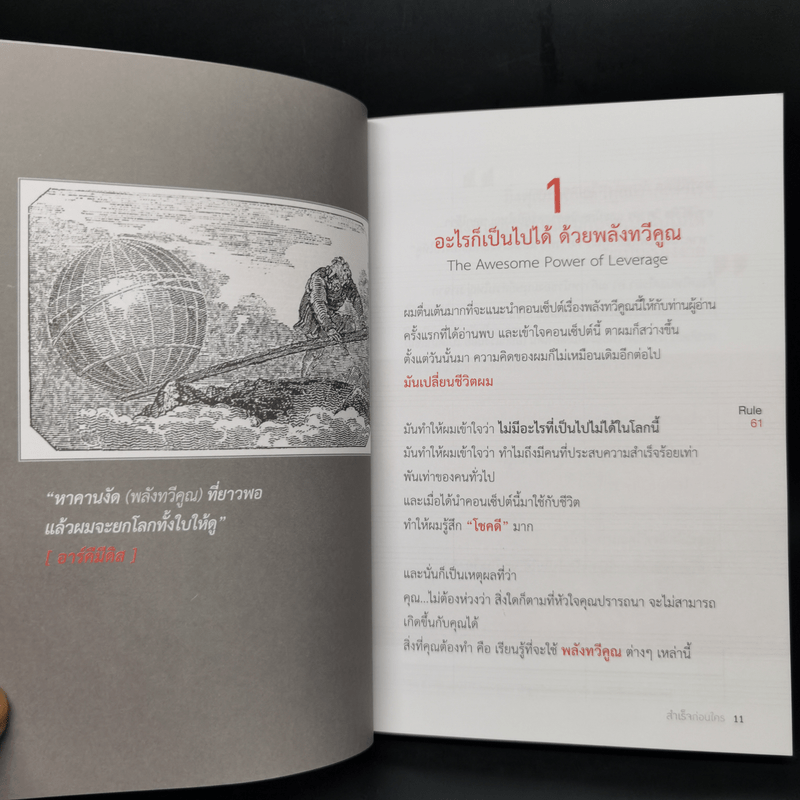 “หาคานงัด (พลังทวีคูณ) ที่ยาวพอ
แล้วผมจะยกโลกทั้งใบให้ดู”
[ อาร์คิมิดิส ]
1
อะไรก็เป็นไปได้ ด้วยพลังทวีคูณ
The Awesome Power of Leverage
ผมตื่นเต้นมากที่จะแนะนำคอนเซ็ปต์เรื่องพลังทวีคูณนี้ให้กับท่านผู้อ่าน
ครั้งแรกที่ได้อ่านพบ และเข้าใจคอนเซ็ปต์นี้ ตาผมก็สว่างขึ้น
ตั้งแต่วันนั้นมา ความคิดของผมก็ไม่เหมือนเดิมอีกต่อไป
มันเปลี่ยนชีวิตผม
Rule
61
มันทำให้ผมเข้าใจว่า ไม่มีอะไรที่เป็นไปไม่ได้ในโลกนี้
มันทำให้ผมเข้าใจว่า ทำไมถึงมีคนที่ประสบความสำเร็จร้อยเท่า
พันเท่าของคนทั่วไป
และเมื่อได้นำคอนเซ็ปต์นี้มาใช้กับชีวิต
ทำให้ผมรู้สึก “โชคดี” มาก
และนั่นก็เป็นเหตุผลที่ว่า
คุณ...ไม่ต้องห่วงว่า สิ่งใดก็ตามที่หัวใจคุณปรารถนา จะไม่สามารถ
เกิดขึ้นกับคุณได้
สิ่งที่คุณต้องทำ คือ เรียนรู้ที่จะใช้ พลังทวีคูณ ต่างๆ เหล่านี้
สำเร็จก่อนใคร 11